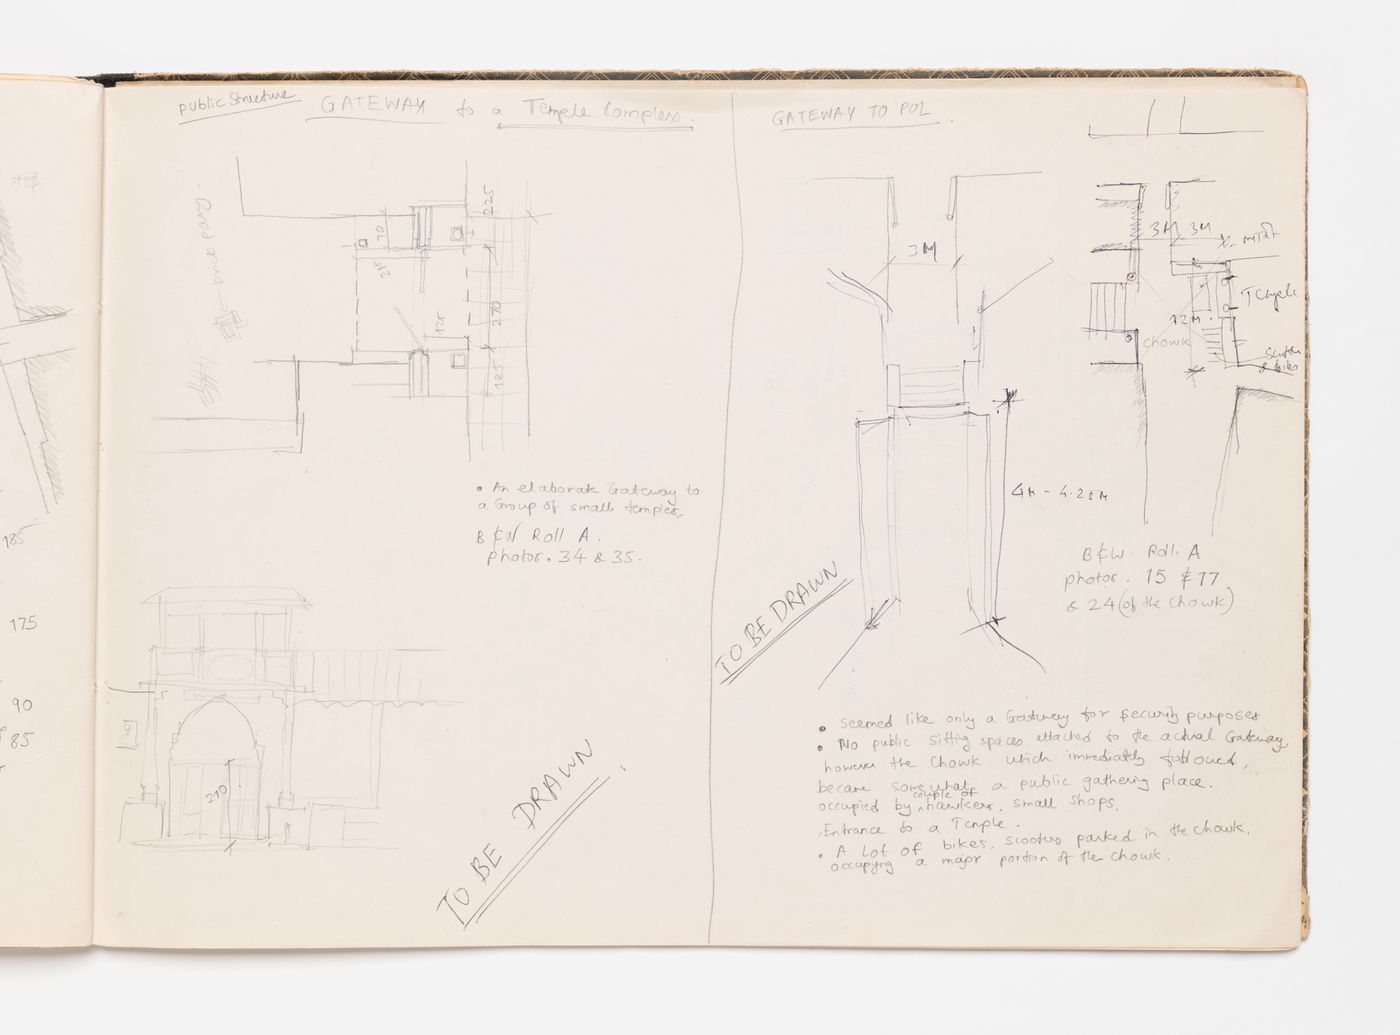 public Structure GATEWAY to a Temple Complex.
225
70
215
270
125
125
• An elaborate Gateway to
a Group of small temples,
B & W Roll A.
photos. 34 & 35.
210
TO BE DRAWN
185
175
90
85
GATEWAY TO POL.
3M
4M - 4.25M
3M 3M
Temple
12M
chowk
Scooters
& bikes
B & W. Roll. A
photos. 15 & 17
& 24 (of the Chowk)
TO BE DRAWN
• seemed like only a Gateway for security purposes
• No public sitting spaces attached to the actual Gateway
however the Chowk which immediately followed,
became somewhat a public gathering place.
occupied by couple of hawkers, small shops.
Entrance to a Temple.
• A Lot of bikes, scooters parked in the chowk.
occupying a major portion of the chowk.